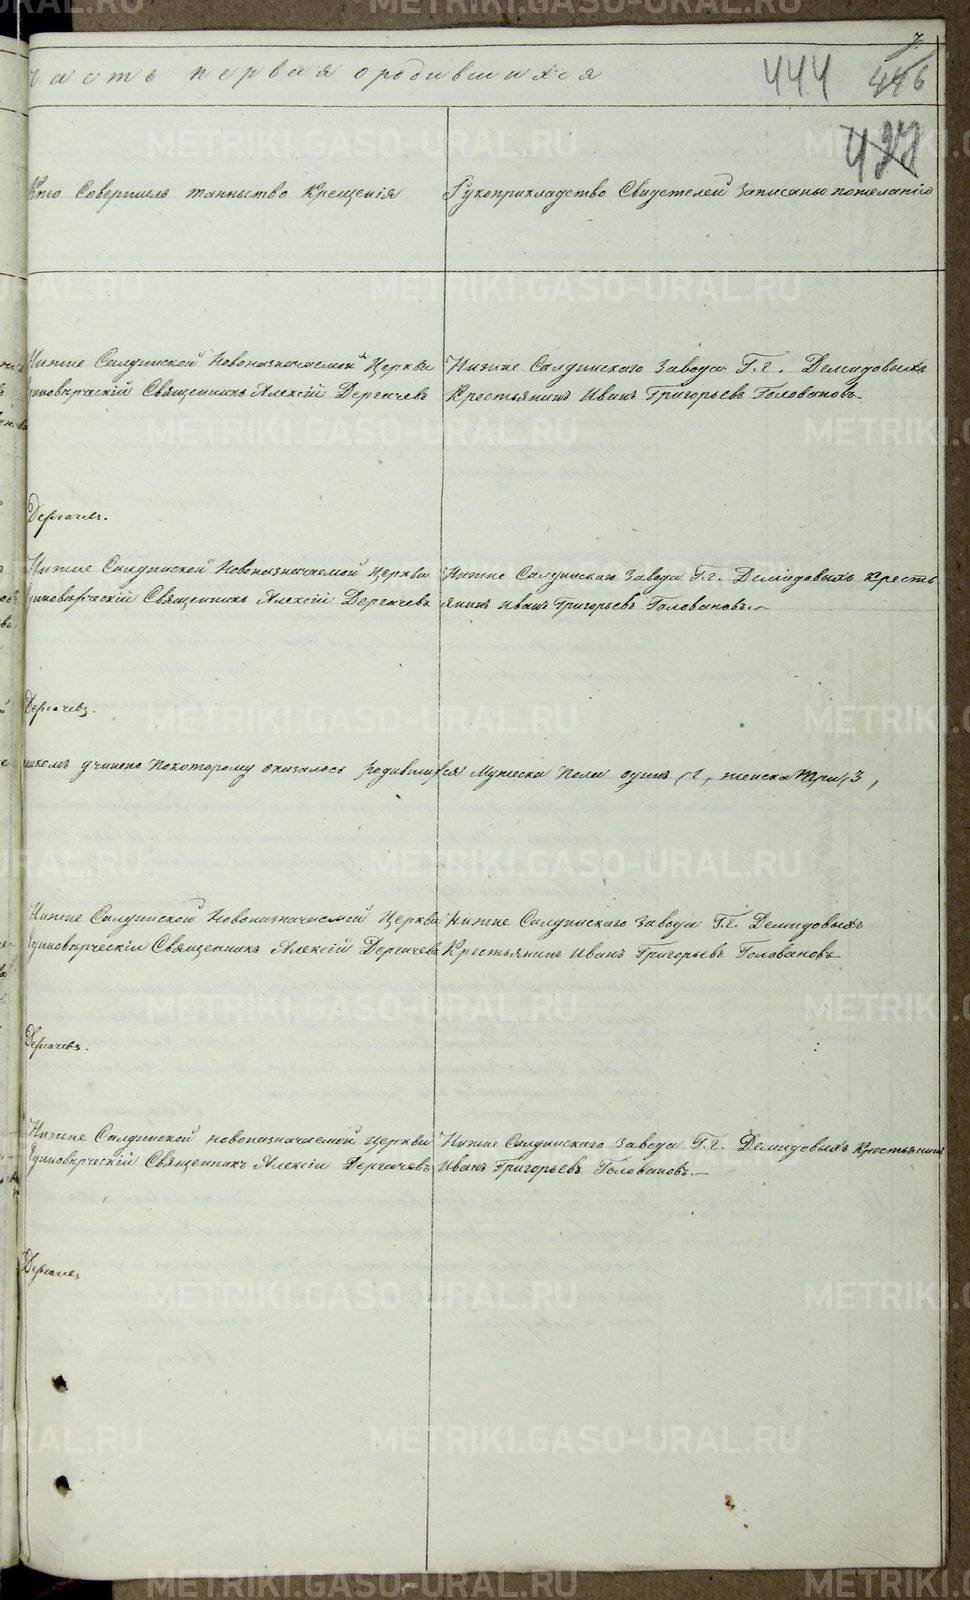 7.
часть первая ородившихся
444 446
Кто Совершилъ таинство Крещенія
Рукоприкладство Свидетелей Записаны пожеланію
Нижне Салдинской Новоназначаемой Церкви
Единоверческій Священникъ Алексій Дергачевъ
Нижне Салдинскаго Завода Г.г. Демидовыхъ
Крестьянинъ Иванъ Григорьевъ Головановъ.
Дергачев.
Нижне Салдинской Новоназначаемой Церкви
Единоверческій Священникъ Алексій Дергачевъ
Нижне Салдинскаго Завода Г.г. Демидовыхъ Кресть
янинъ Иванъ Григорьевъ Головановъ.
Дергачевъ.
учинено покоторому оказалось родившихся Мужеска Пола одинъ (1, женска три) 3,
Нижне Салдинской Новоназначаемой Церкви
Единоверческій Священникъ Алексій Дергачевъ
Нижне Салдинскаго Завода Г.г. Демидовыхъ
Крестьянинъ Иванъ Григорьевъ Головановъ
Дергачевъ.
Нижне Салдинской новоназначаемой Церкви
Единоверческій Священникъ Алексій Дергачевъ
Нижне Салдинскаго Завода Г.г. Демидовыхъ Крестьянинъ
Иванъ Григорьевъ Головановъ.
Дергачев
METRIKI.GASO-URAL.RU